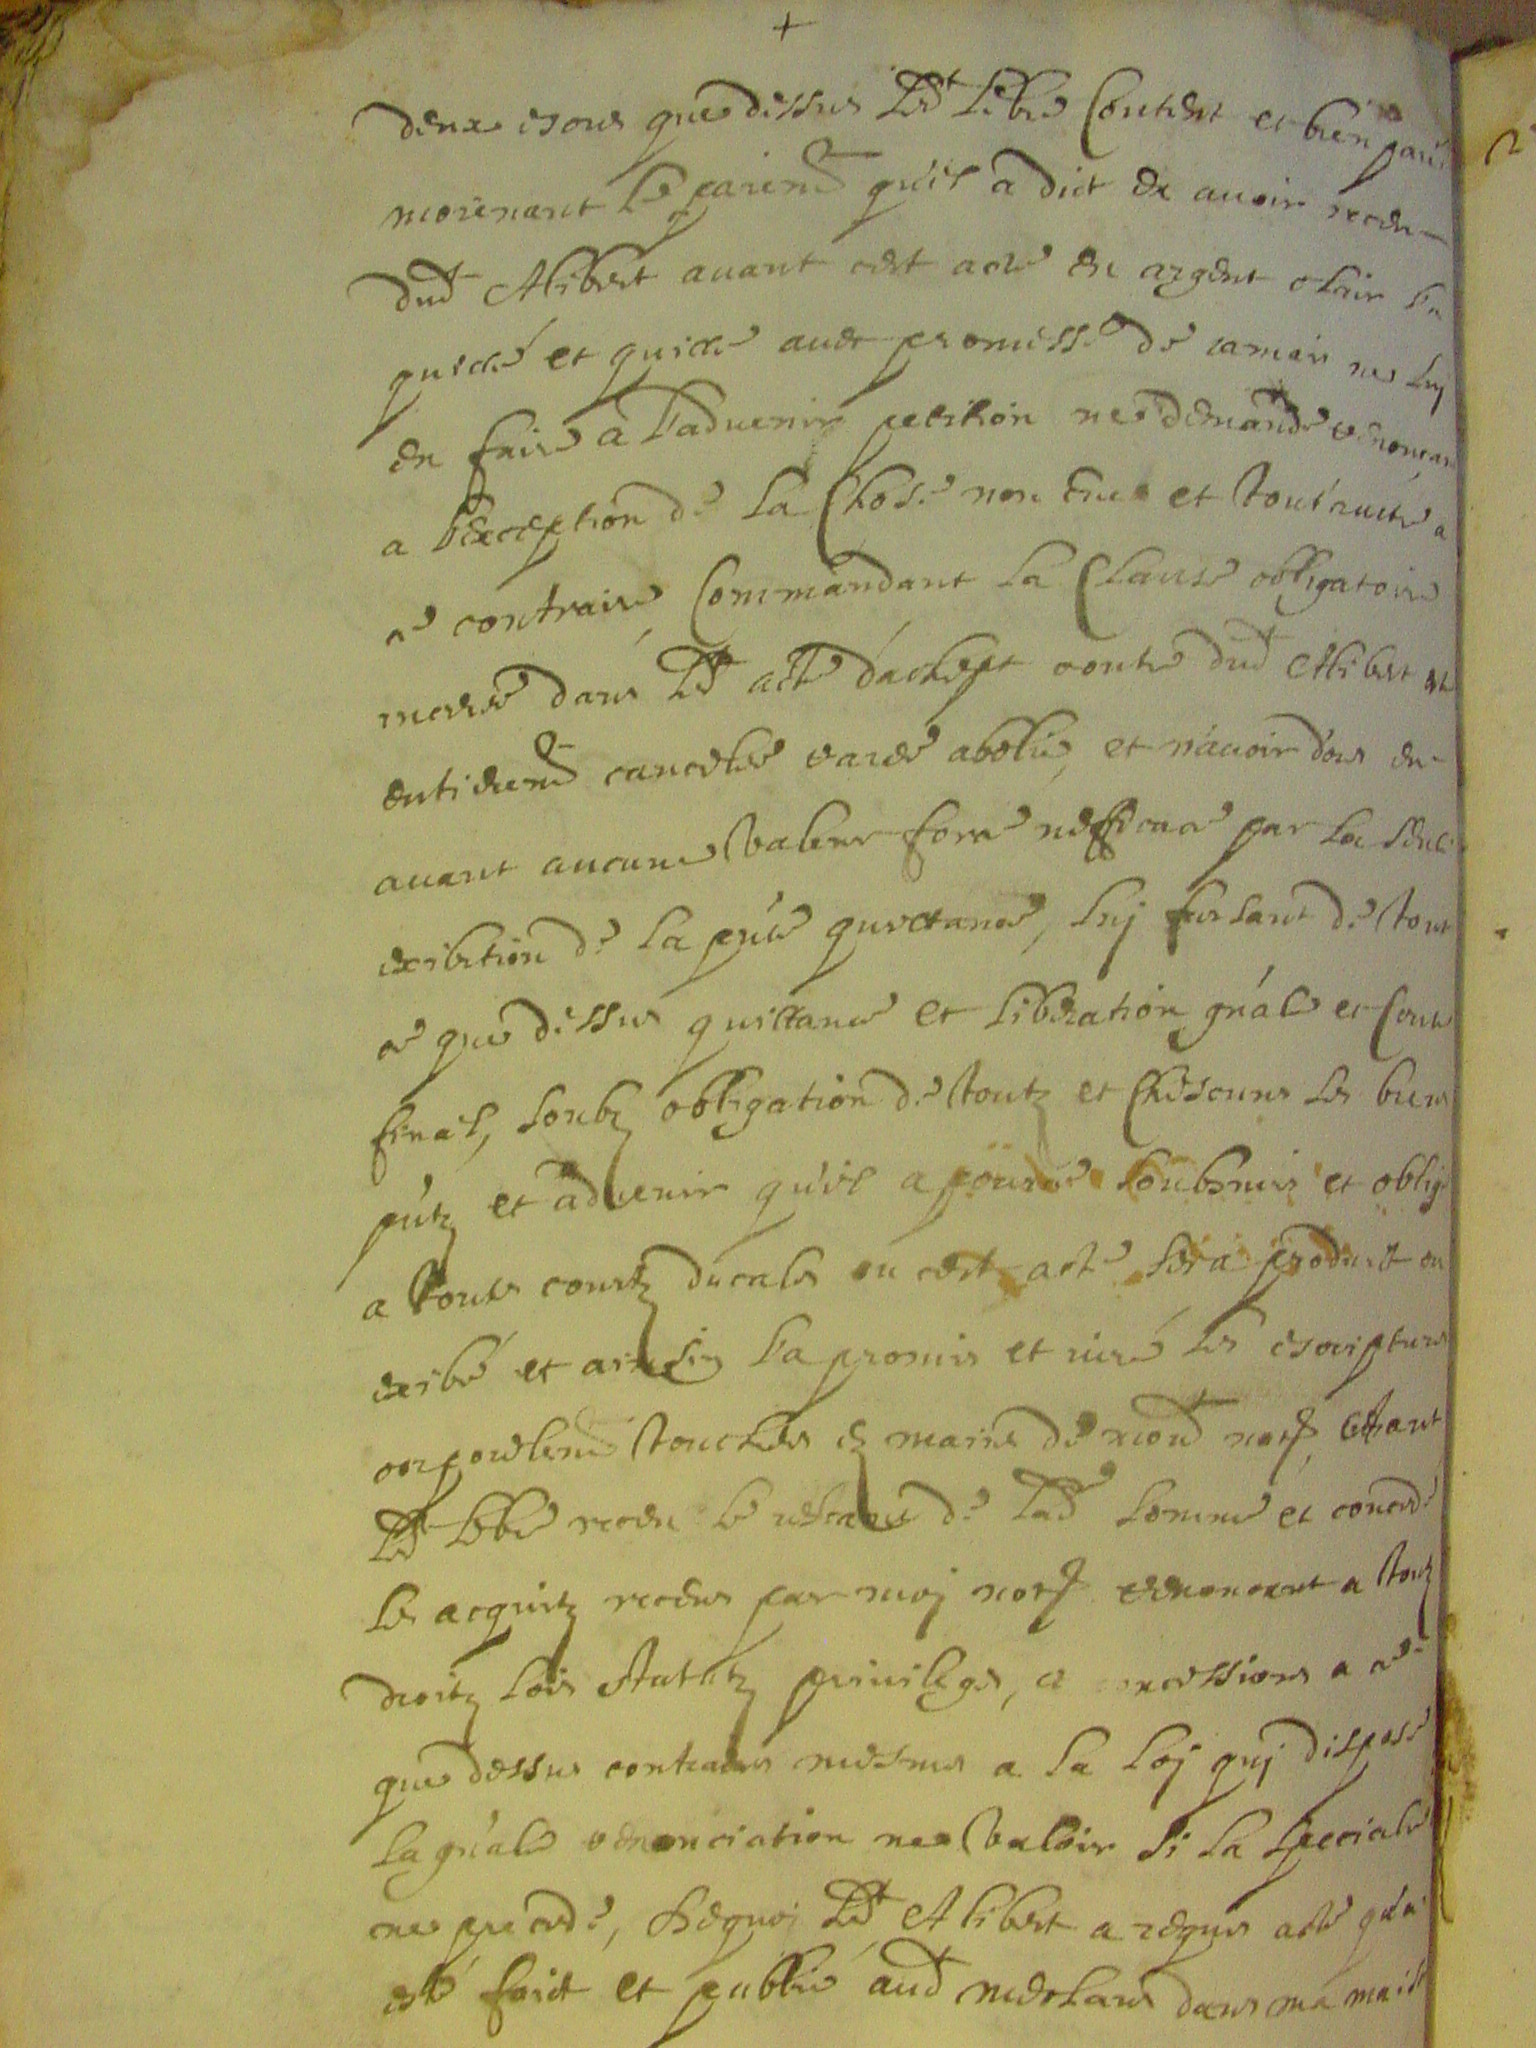 +
deux escus que dessus led.t Libre Content et bien paié
moienant le paiem.t qu'il a dict et avoir receu
dud.t Alibert avant cest acte en argent clair l'a
quicté et quicte avec promesse de iamais ne luy
en faire a l'advenir petition ne demande renoncant
a l'exception de la Chose non eue et tout autre a
ce contraire Commandant la Clause obligatoire
inserée dans led.t acte d'achept contre dud.t Alibert et
entierem.t cancelée abolie, et n'avoir d'ors en
avant aucune valeur force n'efficace par la seule
exibition de la pn'te quictance, luy faisant de tout
ce que dessus quictance et liberation gn'ale et
final, soubz obligation de toutz et Chescuns ses biens
pn'tz et advenir qu'il a pour ce soubzmis et obligé
a toutes courtz ducales ou cest acte sera produit ou
exibé et ainsin l'a promis et iuré les escriptures
corporelem.t touchées ez mains de moid.t not.e estant
led.t Libre receu le de lad.e somme et concedé
les acquitz receus par moy not.e renoncant a toutz
droitz lois statutz privileges, et concessions a ce
que dessus contraires mesmes a la loy quy dispose
la gn'ale renonciation ne valoir si la speciale
ne precede, dequoy led.t Alibert a requis acte qu'a
esté faict et publié aud.t dans ma maison